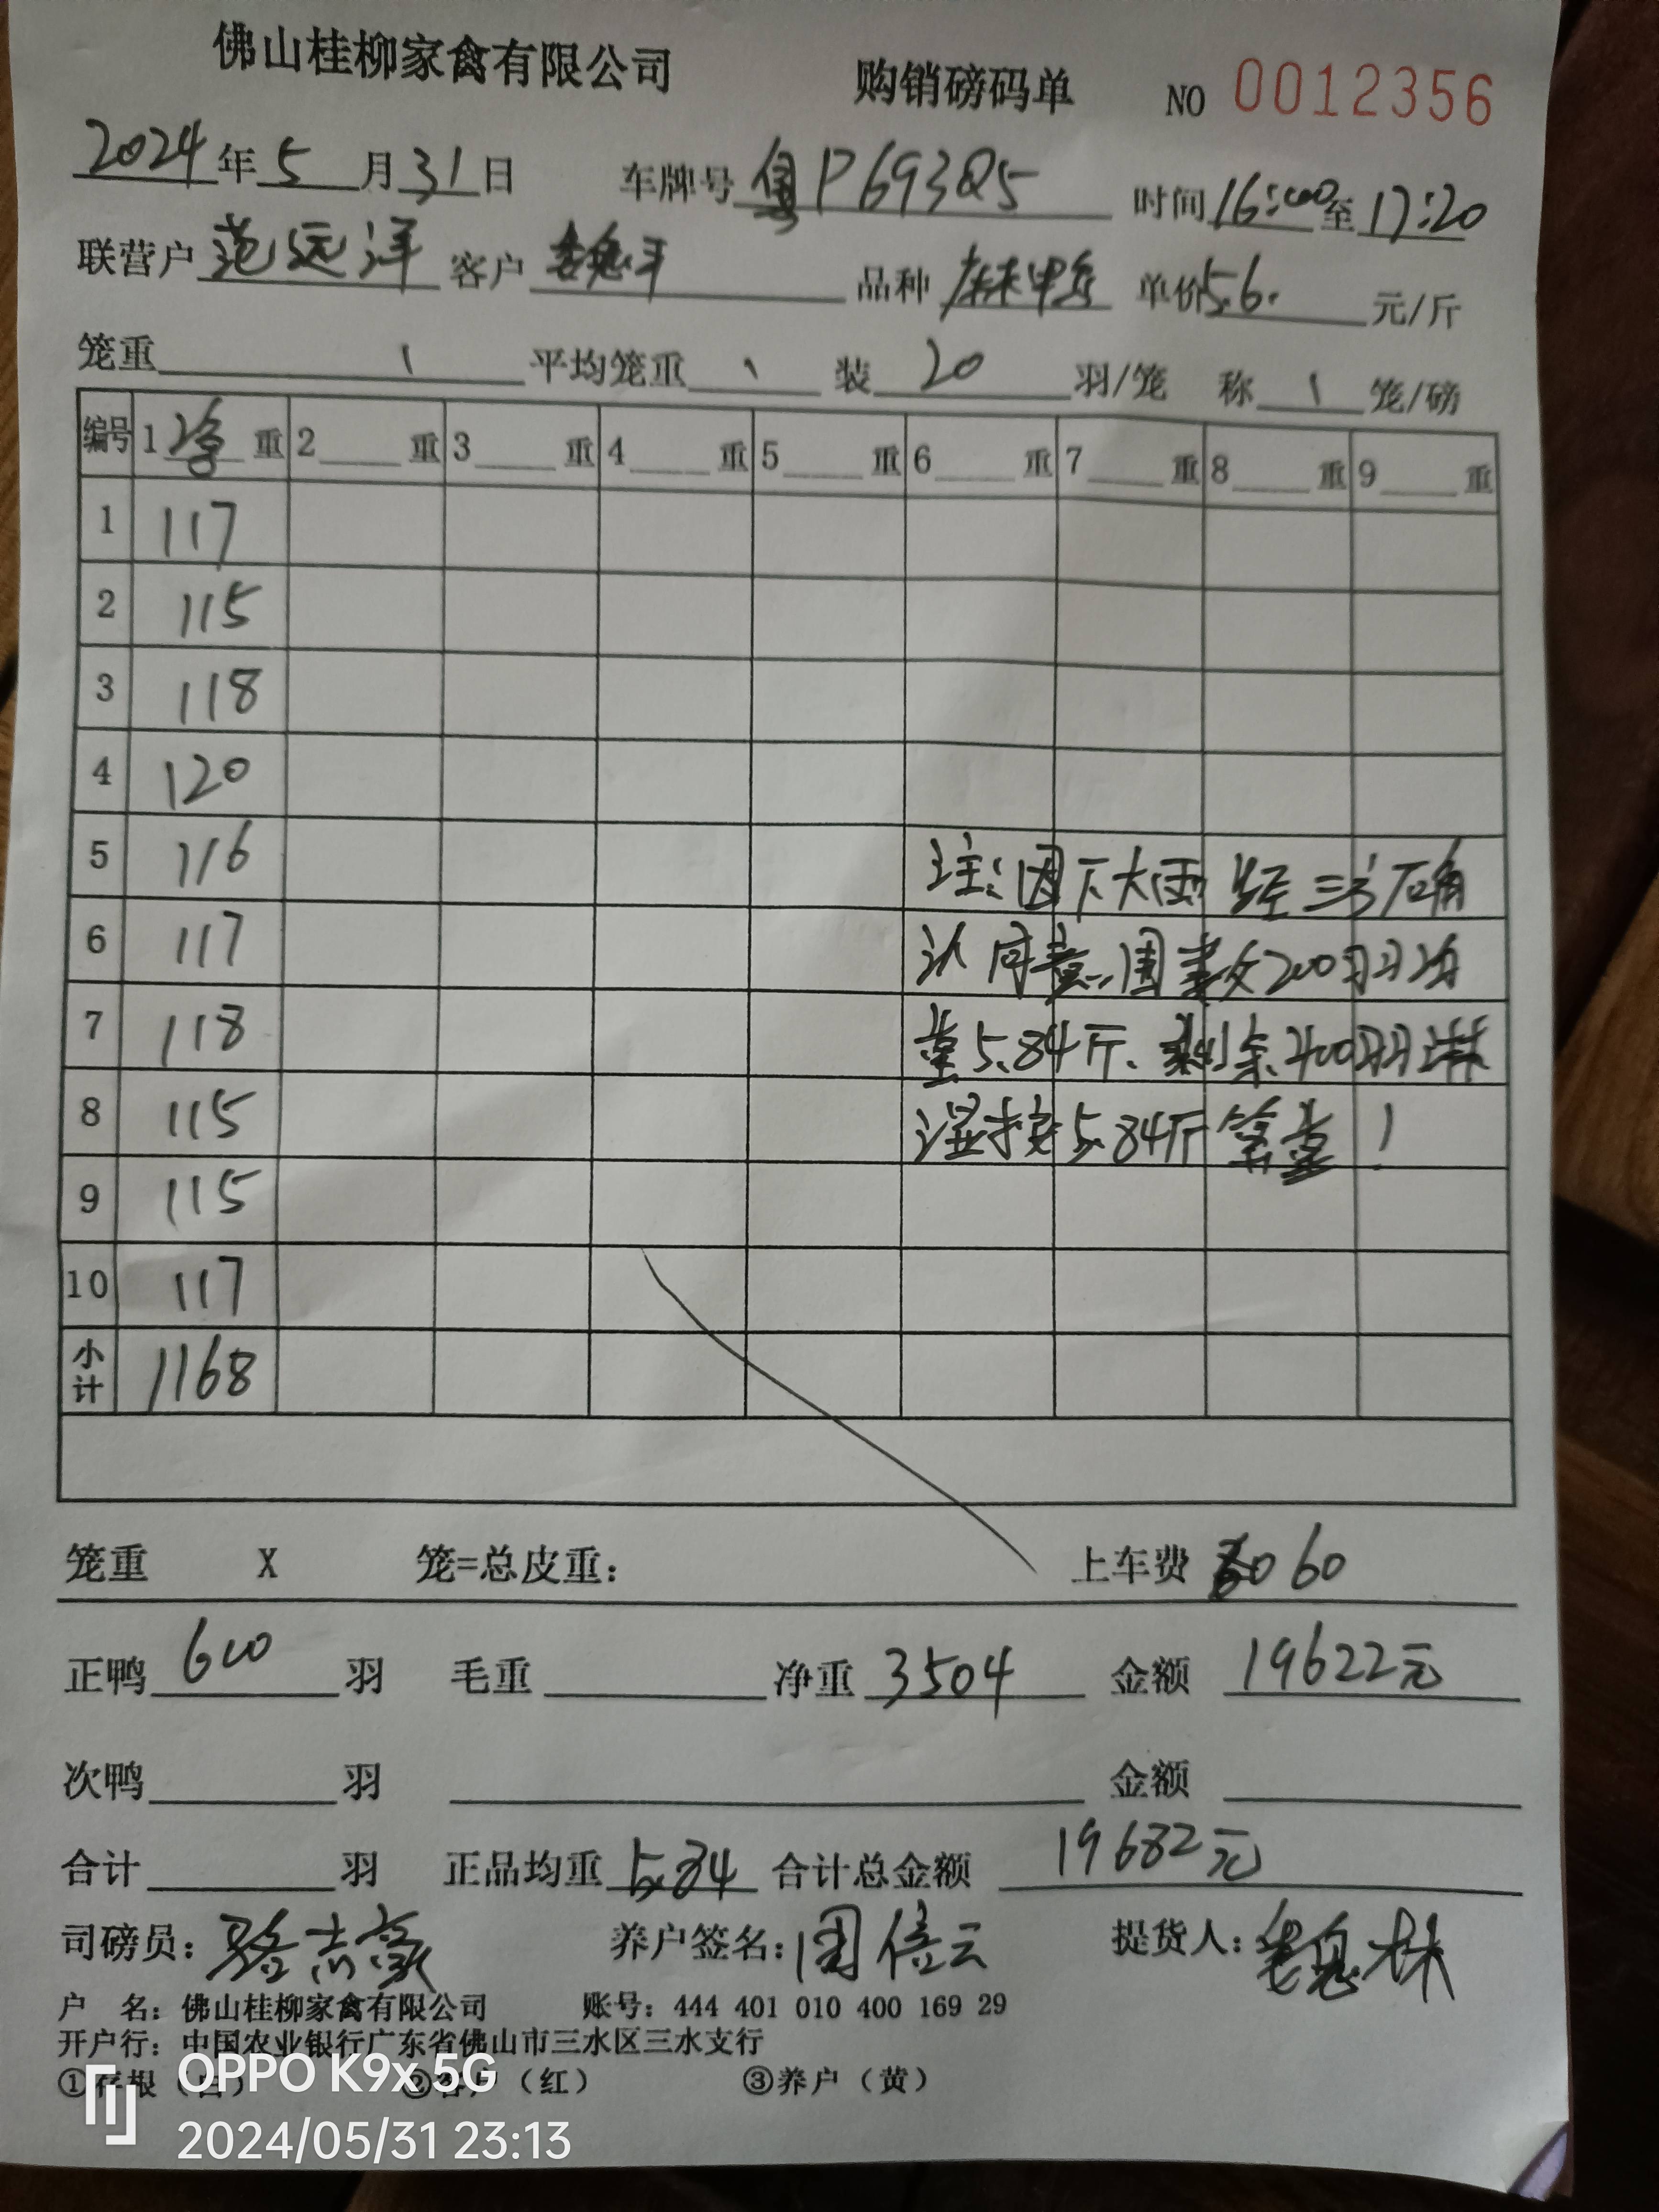 佛山桂柳家禽有限公司 购销磅码单 NO 0012356
2024年5月31日 车牌号 粤P693Q5 时间16:00至17:20
联营户 范远洋 客户 品种 麻中鸭 单价5.6. 元/斤
笼重 1 平均笼重 1 装 20 羽/笼 称 1 笼/磅
编号 1净重 2 重 3 重 4 重 5 重 6 重 7 重 8 重 9 重
1 117
2 115
3 118
4 120
5 116 注:因下大雨 经三方确
6 117 认同意,围数200羽均
7 118 重5.84斤、剩余400羽淋
8 115 湿按5.84斤算重!
9 115
10 117
小计 1168
笼重 X 笼=总皮重: 上车费 60
正鸭 600 羽 毛重 净重 3504 金额 19622元
次鸭 羽 金额
合计 羽 正品均重 5.84 合计总金额 19682元
司磅员:骆志豪 养户签名:周倍云 提货人:
户 名:佛山桂柳家禽有限公司 账号:444 401 010 400 169 29
开户行:中国农业银行广东省佛山市三水区三水支行
①存根(白) ②客户(红) ③养户(黄)
OPPO K9x 5G
2024/05/31 23:13